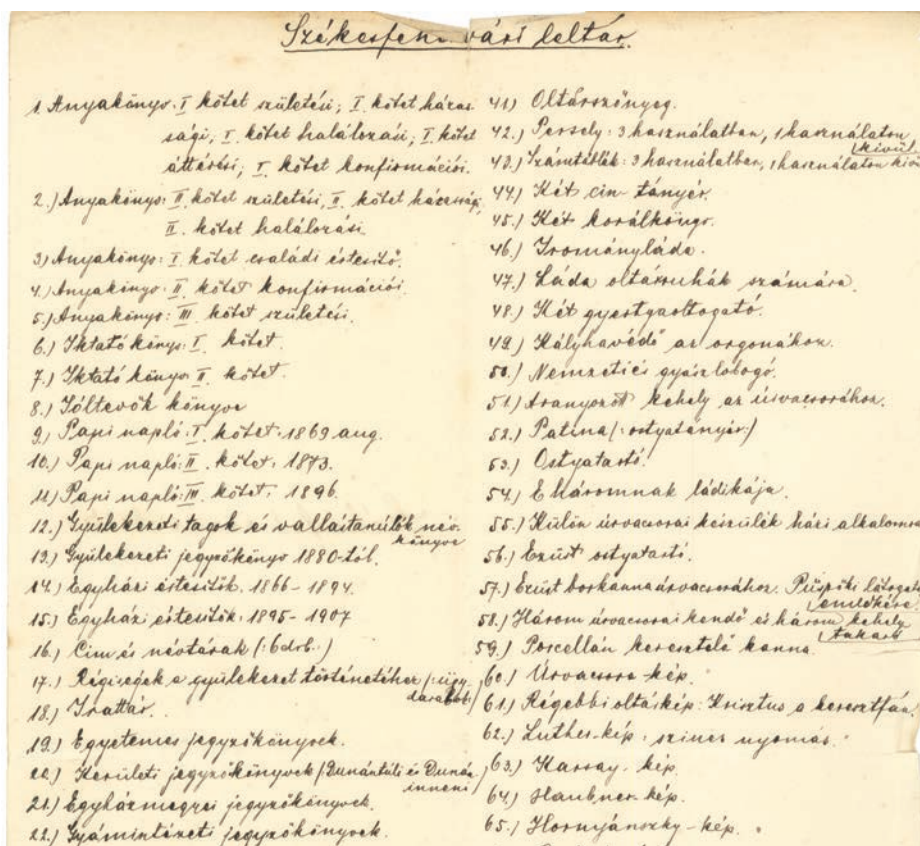 Székesfehérvári leltár.
1. Anyakönyv: I kötet születési; I kötet háza-
sági; I kötet halálozási; I kötet
áttérési; I kötet konfirmációi.
2.) Anyakönyv: II kötet születési, II. kötet házassági,
II. kötet halálozási
3.) Anyakönyv: I kötet családi értesítő.
4.) Anyakönyv: II kötet konfirmációi.
5.) Anyakönyv: III kötet születési.
6.) Iktató könyv: I. kötet.
7.) Iktató könyv II. kötet.
8.) Jóltevők könyve
9.) Papi napló: I. kötet: 1869 aug.
10.) Papi napló: II. kötet: 1873.
11.) Papi napló: III. kötet: 1896.
12.) Gyülekezeti tagok és vallástanulók név-
könyve
13.) Gyülekezeti jegyzőkönyv 1880-tól.
14.) Egyházi értesítők. 1866 - 1894.
15.) Egyházi értesítők: 1895 - 1907
16.) Cím és névtárak (: 6 drb. :)
17.) Régiségek a gyülekezet történetéhez
darabb:)
18.) Irattár.
19.) Egyetemes jegyzőkönyvek.
20.) Kerületi jegyzőkönyvek (Dunántúli és Dunán-
inneni)
21.) Egyházmegyei jegyzőkönyvek.
22.) Gyámintézeti jegyzőkönyvek.
41.) Oltárszőnyeg.
42.) Persely: 3 használatban, 1 használaton
kívül.
43.) Számtáblák: 3 használatban, 1 használaton kívül
44.) Két cin tányér.
45.) Két korálkönyv.
46.) Irományláda.
47.) Láda oltárruhák számára.
48.) Két gyertyaoltogató.
49.) Kályhavédő az orgonához.
50.) Nemzeti és gyászlobogó.
51.) Aranyozott kehely az úrvacsorához.
52.) Patina (: ostyatányér :)
53.) Ostyatartó.
54.) E háromnak ládikája.
55.) Külön úrvacsorai készülék házi alkalomra
56.) Ezüst ostyatartó.
57.) Ezüst borkanna úrvacsorához. Püspöki látogatás
emlékére.
58.) Három úrvacsorai kendő és három kehely
takaró
59.) Porcellán keresztelő kanna.
60.) Úrvacsora-kép.
61.) Régebbi oltárkép: Krisztus a keresztfán.
62.) Luther-kép: színes nyomás.
63.) Karsay-kép.
64.) Haubner-kép.
65.) Hornyánszky-kép.